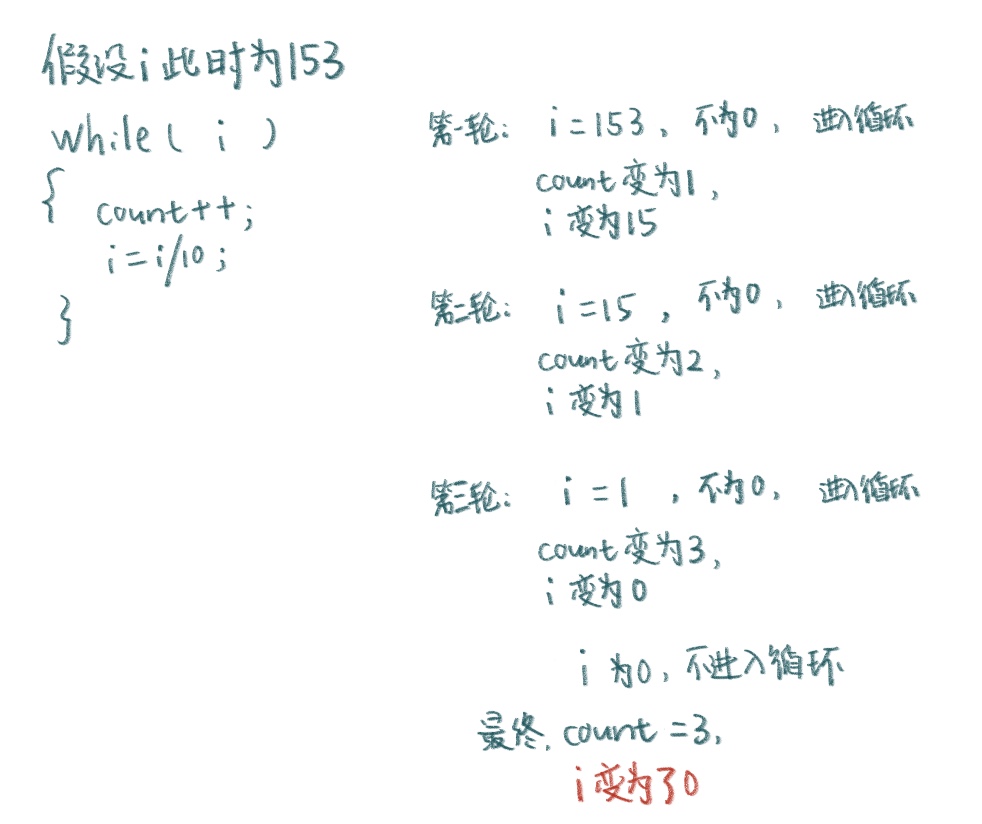 假设i此时为153
while( i )
{
count++;
i=i/10;
}
第一轮: i=153, 不为0, 进入循环
count变为1,
i变为15
第二轮: i=15, 不为0, 进入循环
count变为2,
i变为1
第三轮: i=1, 不为0, 进入循环
count变为3,
i变为0
i为0, 不进入循环
最终, count=3,
i变为了0